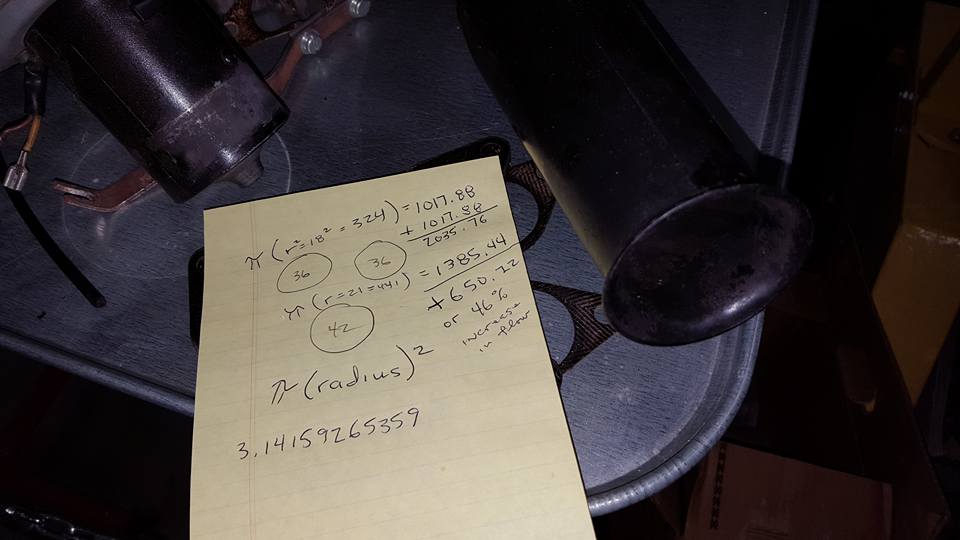 π (r²=18² = 324) = 1017.88
+ 1017.88
2035.76
36
36
π (r=21=441) = 1385.44
+ 650.22
42
or 46%
increase
in flow
π (radius)²
3.14159265359